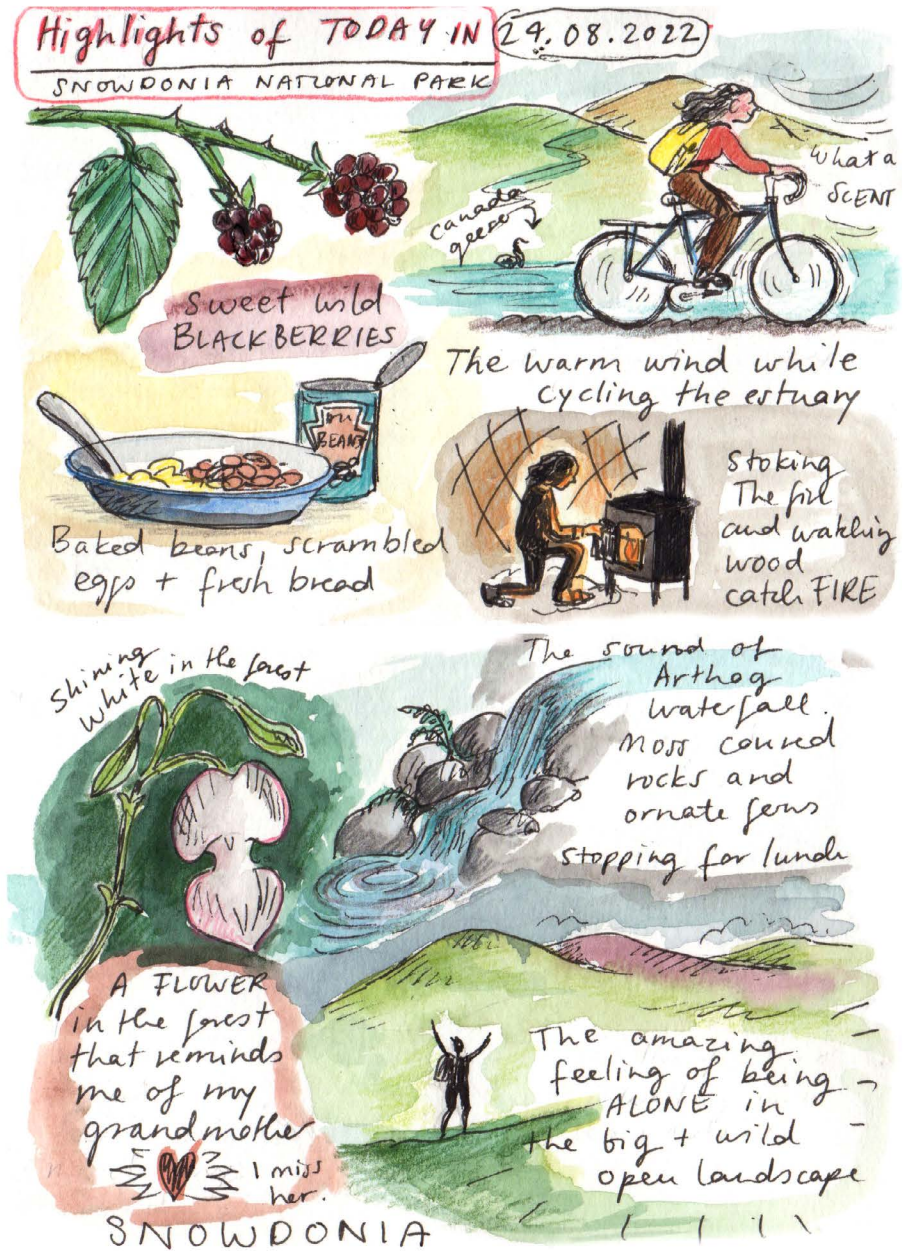 Highlights of TODAY IN
SNOWDONIA NATIONAL PARK
24.08.2022
What a
SCENT
Canada
geese
Sweet wild
BLACKBERRIES
The warm wind while
cycling the estuary
BEANS
Baked beans, scrambled
eggs + fresh bread
Stoking
The fire
and watching
wood
catch FIRE
Shining
white in the forest
The sound of
Arthog
waterfall.
Moss covered
rocks and
ornate ferns
stopping for lunch
A FLOWER
in the forest
that reminds
me of my
grandmother
I miss
her.
The amazing
feeling of being
ALONE in
the big + wild
open landscape
SNOWDONIA